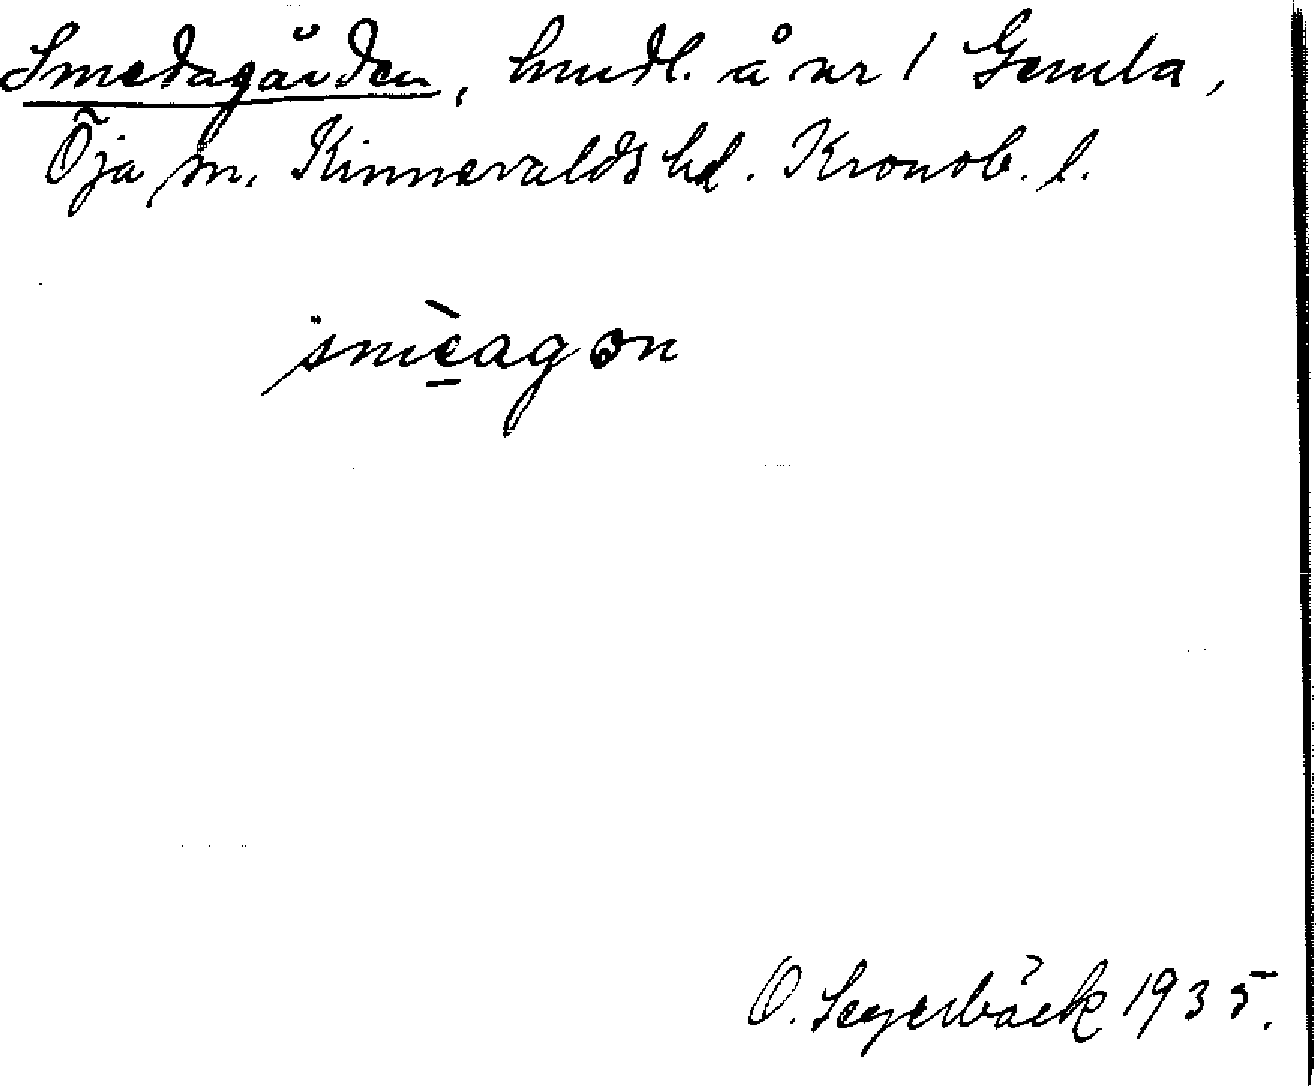 Smedagården, hmdl. å nr 1 Gemla,
Öja sn. Kinnevalds hd. Kronob. l.
smèagɔn
O. Segerbäck 1935.